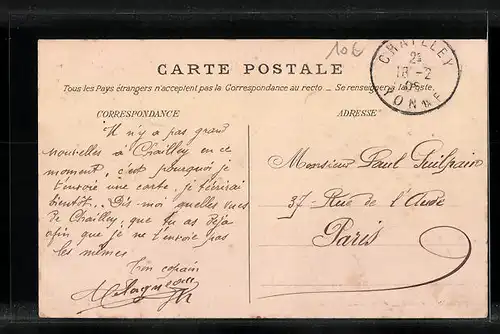 10€
CHAILLEY
18-2
YONNE
CARTE POSTALE
Tous les Pays étrangers n'acceptent pas la Correspondance au recto. _ Se renseigner à la Poste.
CORRESPONDANCE
ADRESSE
Il n'y a pas grand
nouvelles à Chailley en ce
moment, c'est pourquoi je
t'envoie une carte. je t'écrirai
bientôt... Dis moi quelles vues
de Chailley, que tu as déjà
afin que je ne t'envoie pas
les mêmes.
Ton copain
Monsieur Paul
37 - Rue de l'Aude
Paris